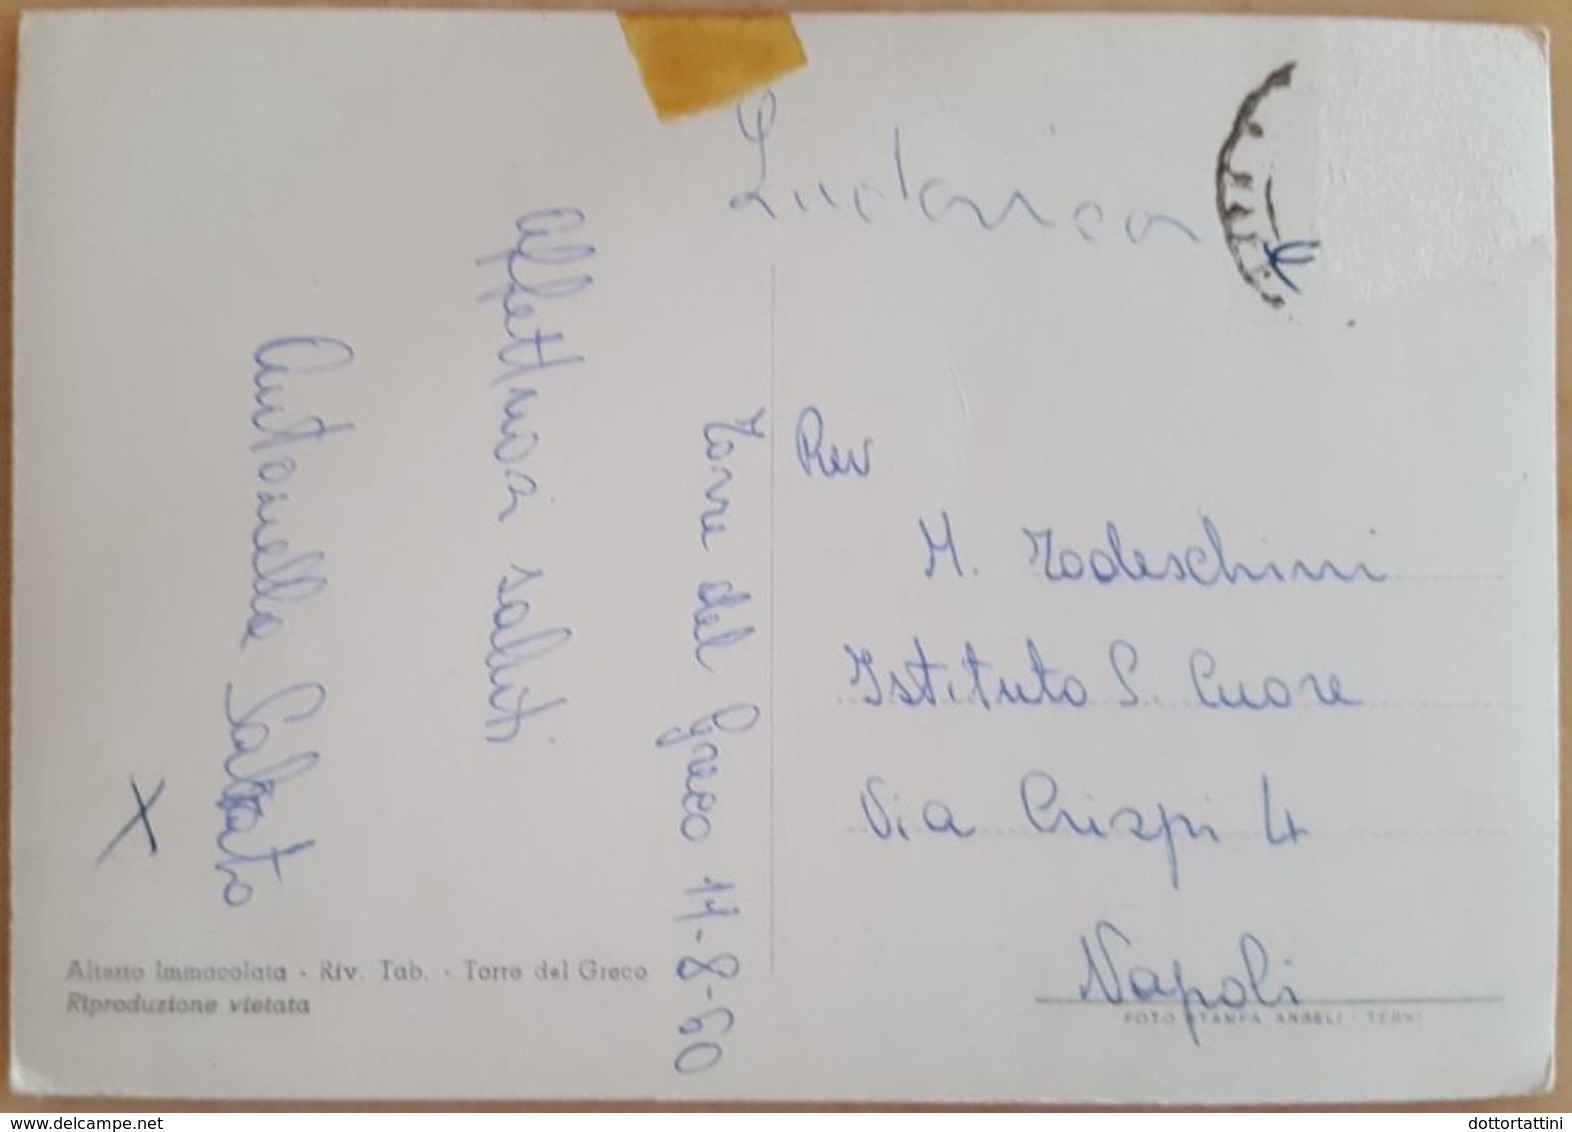 Ludovica
Torre del Greco 14-8-60
Affettuosi saluti
Antonella Sabato
X
Rev
M. Todeschini
Istituto S. Cuore
Via Crispi 4
Napoli
Alterio Immacolata - Riv. Tab. - Torre del Greco
Riproduzione vietata
FOTO STAMPA ANGELI - TERNI
www.delcampe.net
dottortattini